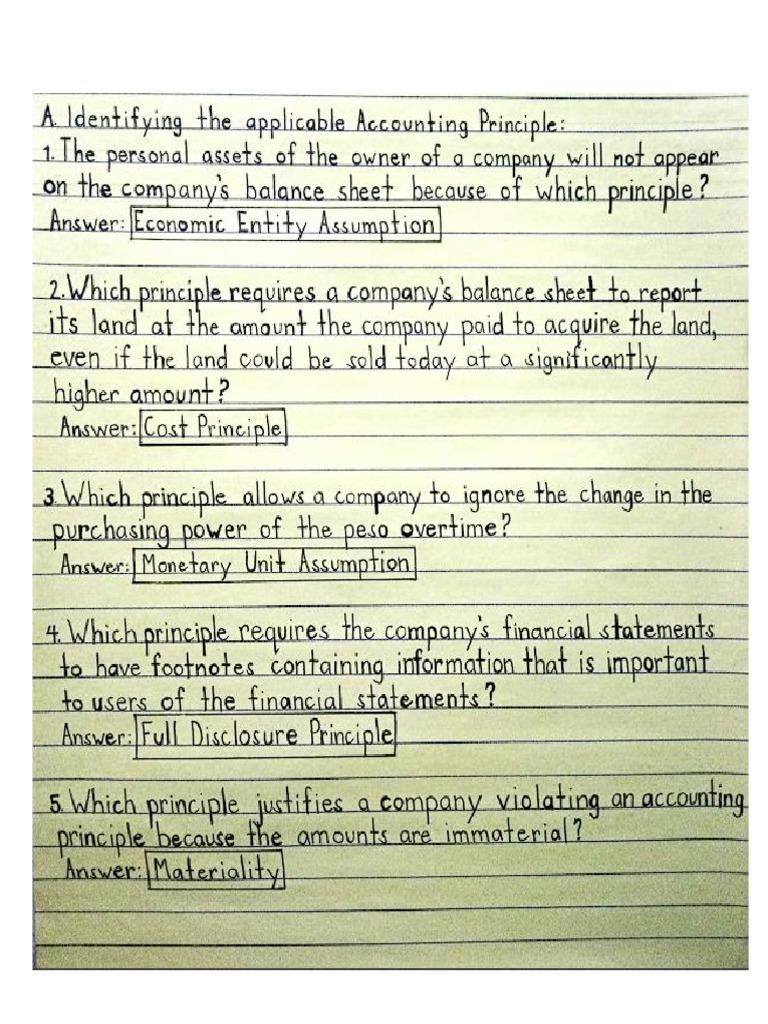 A. Identifying the applicable Accounting Principle:
1. The personal assets of the owner of a company will not appear
on the company's balance sheet because of which principle?
Answer: Economic Entity Assumption
2. Which principle requires a company's balance sheet to report
its land at the amount the company paid to acquire the land,
even if the land could be sold today at a significantly
higher amount?
Answer: Cost Principle
3. Which principle allows a company to ignore the change in the
purchasing power of the peso overtime?
Answer: Monetary Unit Assumption
4. Which principle requires the company's financial statements
to have footnotes containing information that is important
to users of the financial statements?
Answer: Full Disclosure Principle
5. Which principle justifies a company violating an accounting
principle because the amounts are immaterial?
Answer: Materiality